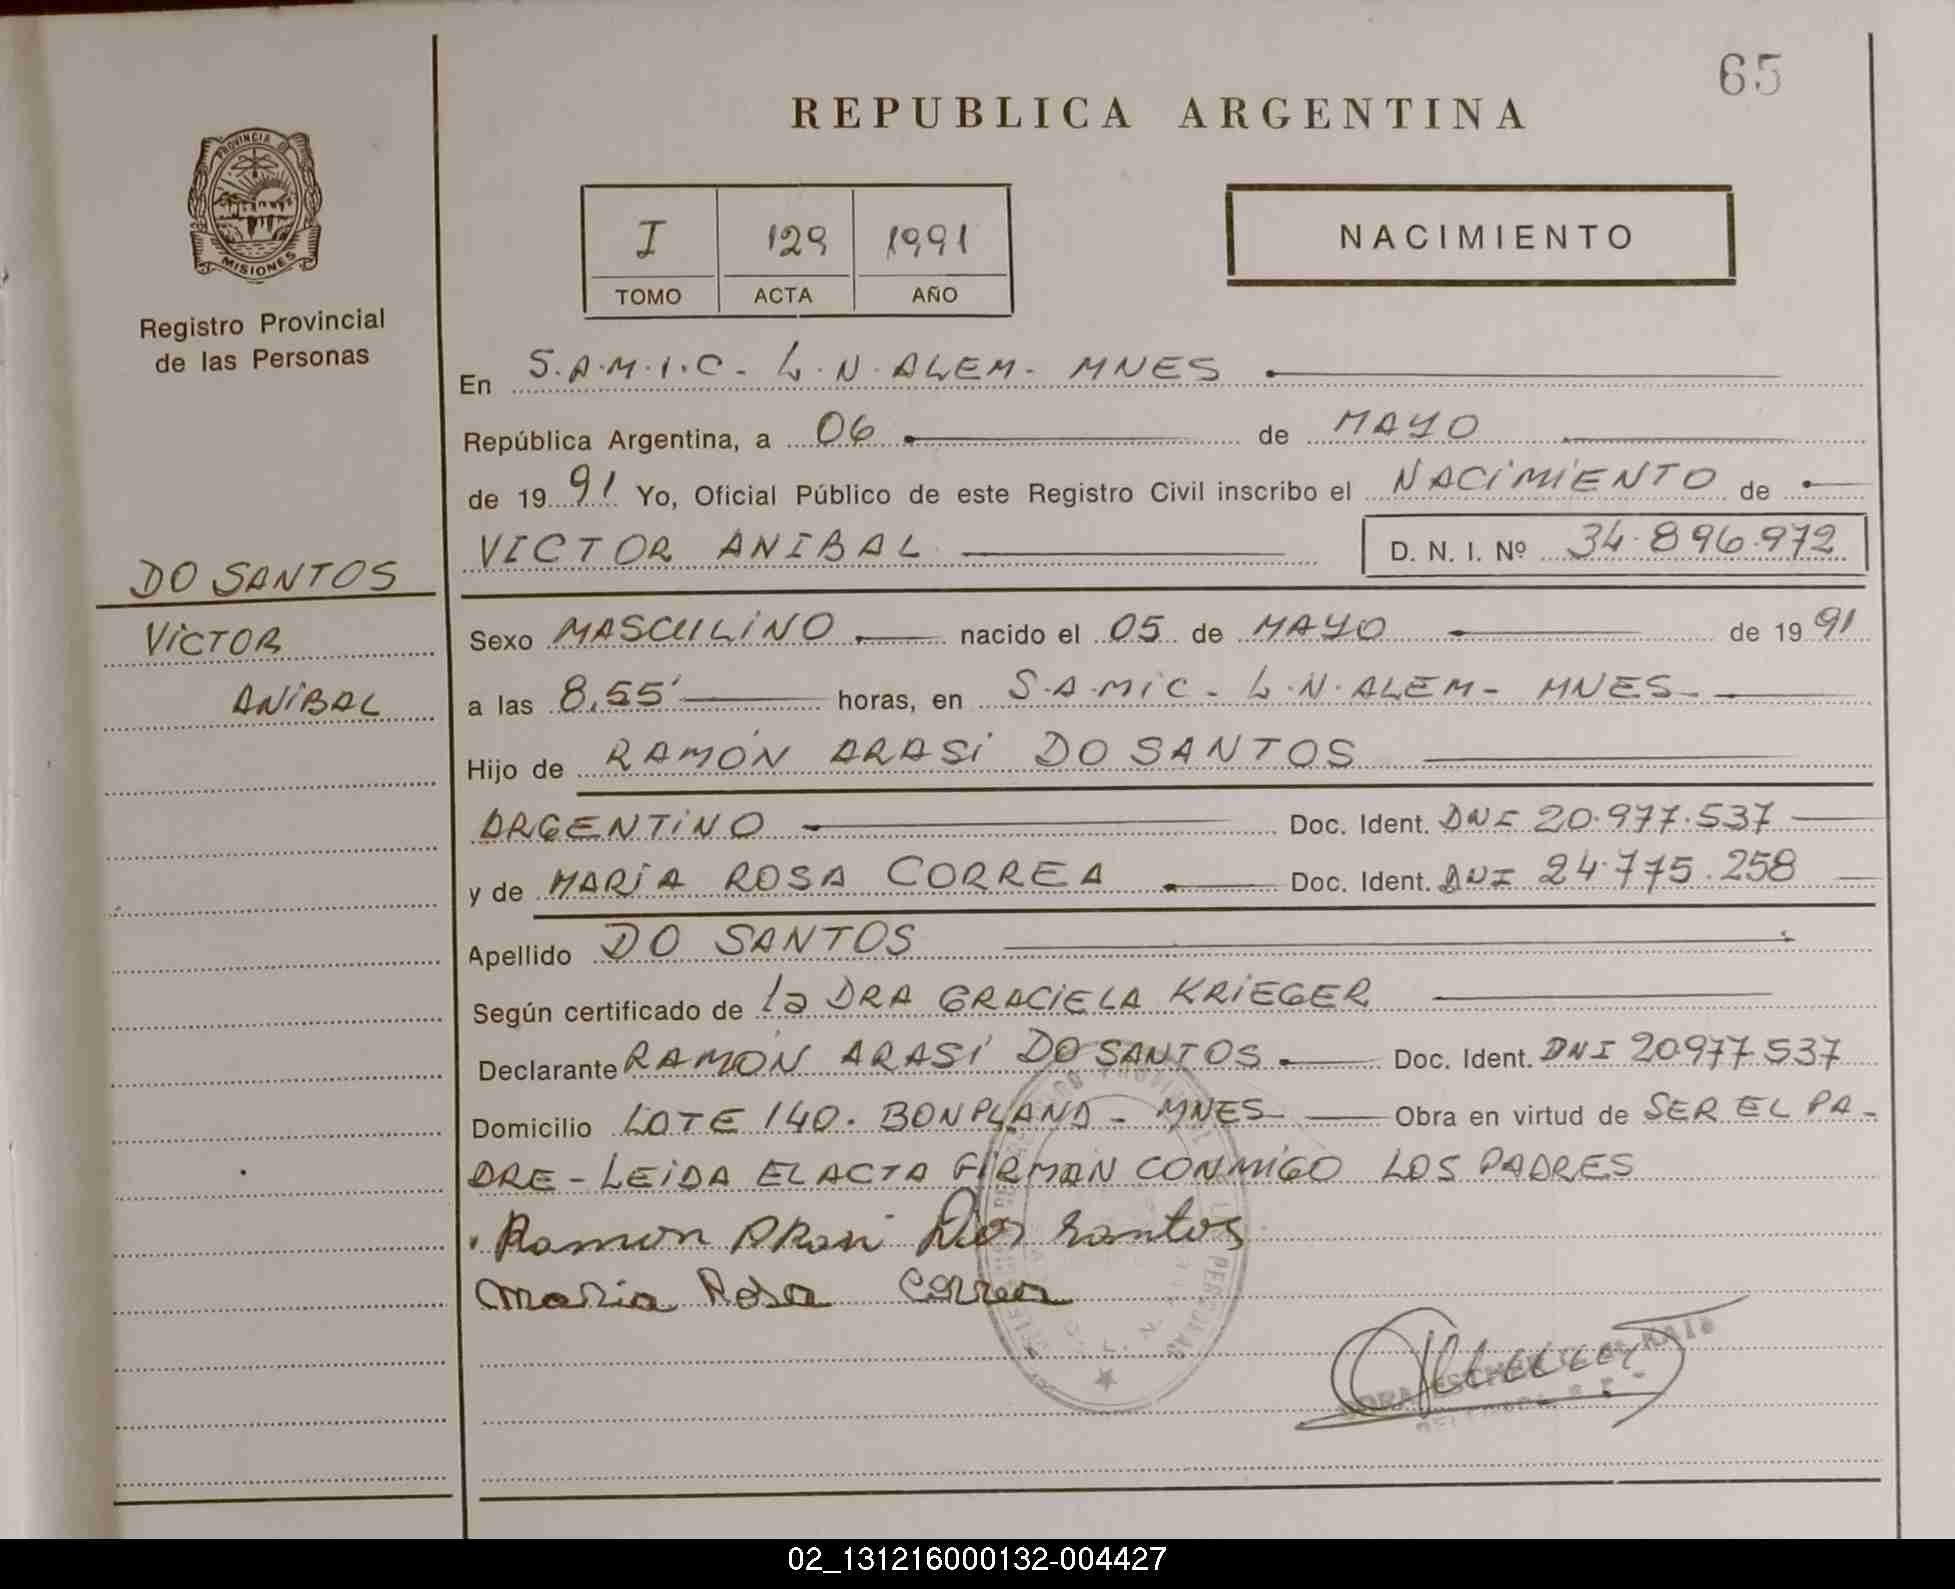 65
REPUBLICA ARGENTINA
PROVINCIA DE
MISIONES
Registro Provincial
de las Personas
I 129 1991
TOMO ACTA AÑO
NACIMIENTO
En S.A.M.I.C - L.N. ALEM - MNES
República Argentina, a 06 de MAYO
de 1991 Yo, Oficial Público de este Registro Civil inscribo el NACIMIENTO de
VICTOR ANIBAL D. N. I. Nº 34.896.972
DO SANTOS
VICTOR
ANIBAL
Sexo MASCULINO nacido el 05 de MAYO de 1991
a las 8,55' horas, en S.A.MIC - L.N. ALEM - MNES -
Hijo de RAMÓN ARASI DO SANTOS
ARGENTINO Doc. Ident. DNI 20.977.537
y de MARIA ROSA CORREA Doc. Ident. DNI 24.775.258
Apellido DO SANTOS
Según certificado de la DRA GRACIELA KRIEGER
Declarante RAMÓN ARASI DO SANTOS Doc. Ident. DNI 20977537
Domicilio LOTE 140. BONPLAND - MNES Obra en virtud de SER EL PA-
DRE - LEIDA EL ACTA FIRMAN CONMIGO LOS PADRES
Ramon Arasi Dos Santos
Maria Rosa Correa
02_131216000132-004427